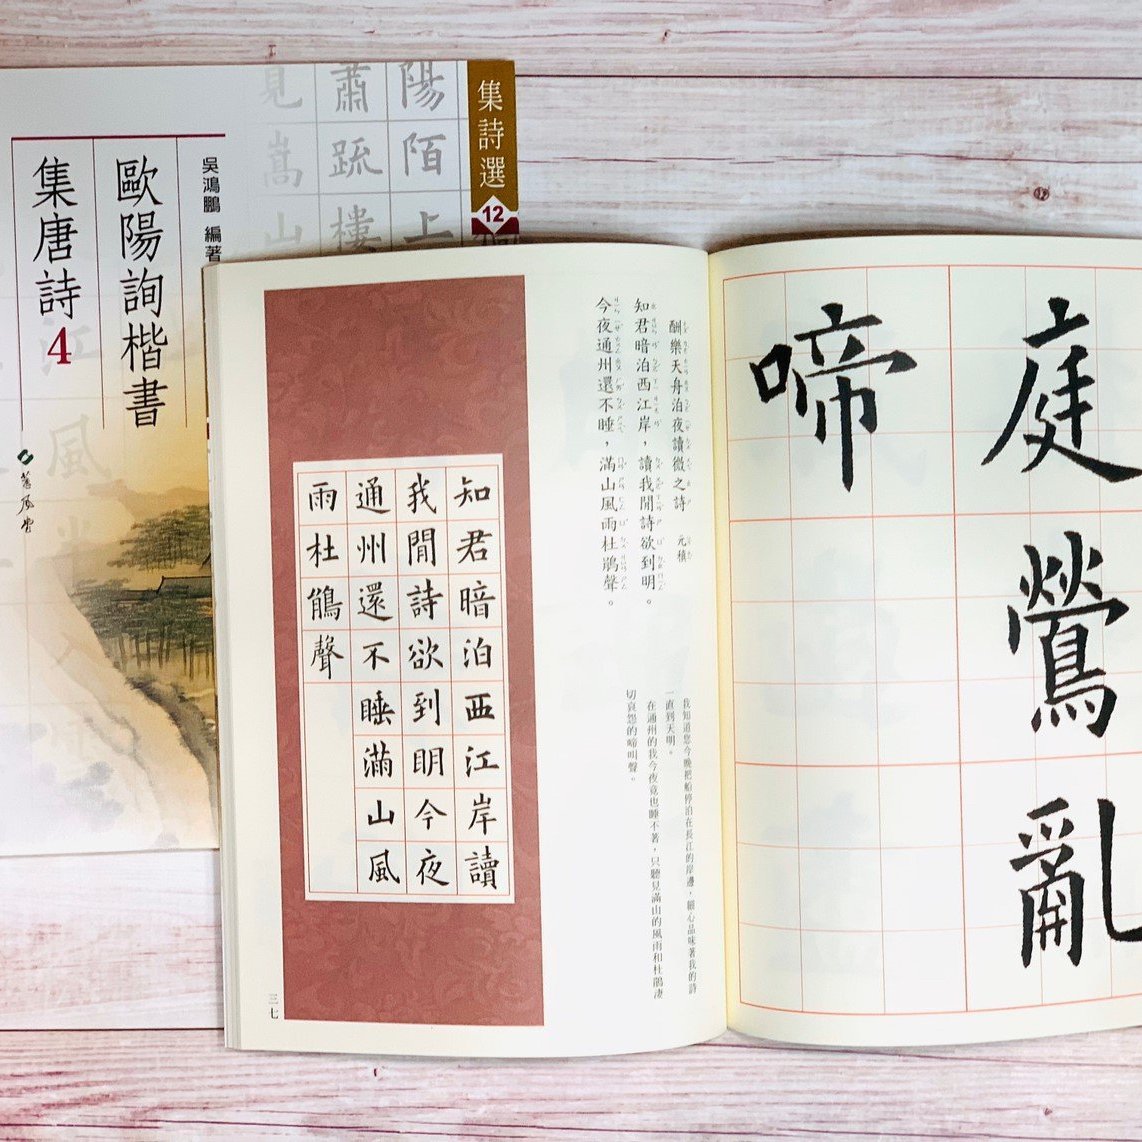 集詩選
12
陽陌上
蕭疏樓
見嵩山
吳鴻鵬 編著
歐陽詢楷書
集唐詩4
蕙風堂
庭鶯亂
啼
酬樂天舟泊夜讀微之詩 元稹
知君暗泊西江岸，讀我閒詩欲到明。
今夜通州還不睡，滿山風雨杜鵑聲。
我知道您今晚把船停泊在長江的岸邊，細心品味著我的詩
一直到天明。
在通州的我今夜竟也睡不著，只聽見滿山的風雨和杜鵑淒
切哀怨的啼叫聲。
知君暗泊西江岸讀
我閒詩欲到明今夜
通州還不睡滿山風
雨杜鵑聲
三七